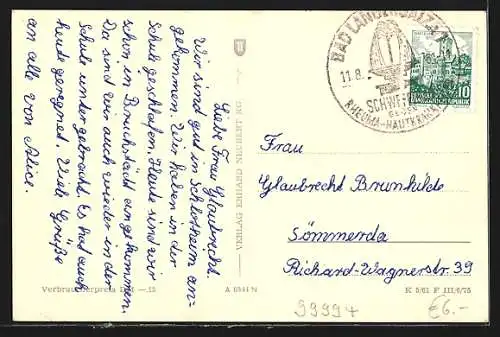 Liebe Frau Glaubrecht.
Wir sind gut in Schlotheim an-
gekommen. Wir haben in der
Schule geschlafen. Heute sind wir
schon in Bruchstädt angekommen.
Da sind wir auch wieder in der
Schule untergebracht. Es hat auch
heute geregnet. Viele Grüße
an alle von Alice.
VERLAG ERHARD NEUBERT KG
Verbraucherpreis DM —,15
A 6841 N
BAD LANGENSALZA
11.8.
SCHWEFEL
GEGEN
RHEUMA-HAUTKRANKH
10
Frau
Glaubrecht Brunhilde
Sömmerda
Richard-Wagnerstr. 39
K 5/61 F III/6/75
99994
€6.-